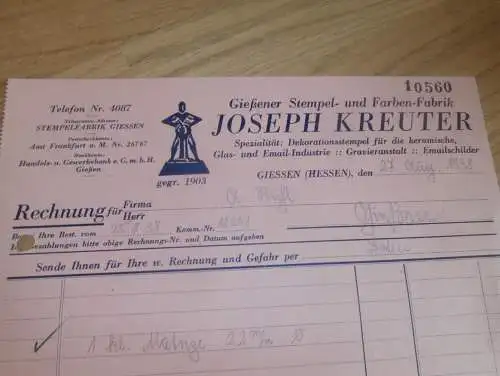 10560
Telefon Nr. 4087
Telegramm-Adresse:
STEMPELFABRIK GIESSEN
Postscheckkonto:
Amt Frankfurt a. M. Nr. 26767
Bankkonto:
Handels- u. Gewerbebank e. G. m. b. H.
Gießen
gegr. 1903
Gießener Stempel- und Farben-Fabrik
JOSEPH KREUTER
Spezialität: Dekorationsstempel für die keramische,
Glas- und Email-Industrie :: Gravieranstalt :: Emailschilder
GIESSEN (HESSEN), den 27. Aug. 1938
Rechnung für Firma
Herr
Ihre Best. vom Komm.-Nr.
zahlungen bitte obige Rechnungs-Nr. und Datum aufgeben
Sende Ihnen für Ihre w. Rechnung und Gefahr per
1 22 m/m